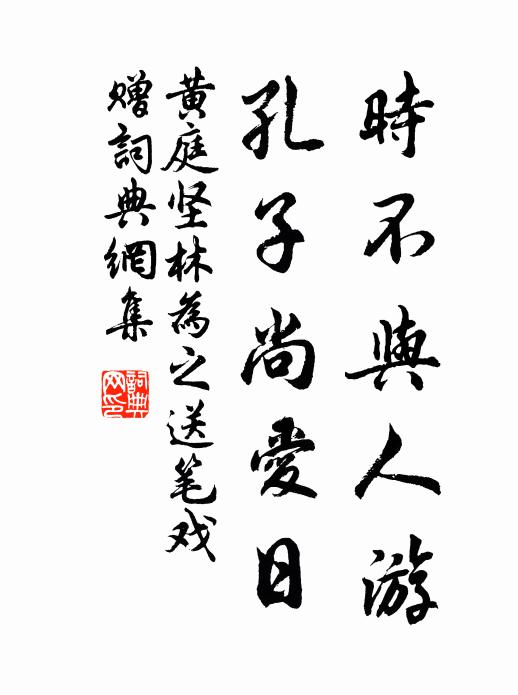 時不與人游
孔子尚愛日
黄庭坚林為之送笔戏
贈詞典網集
詞典网印